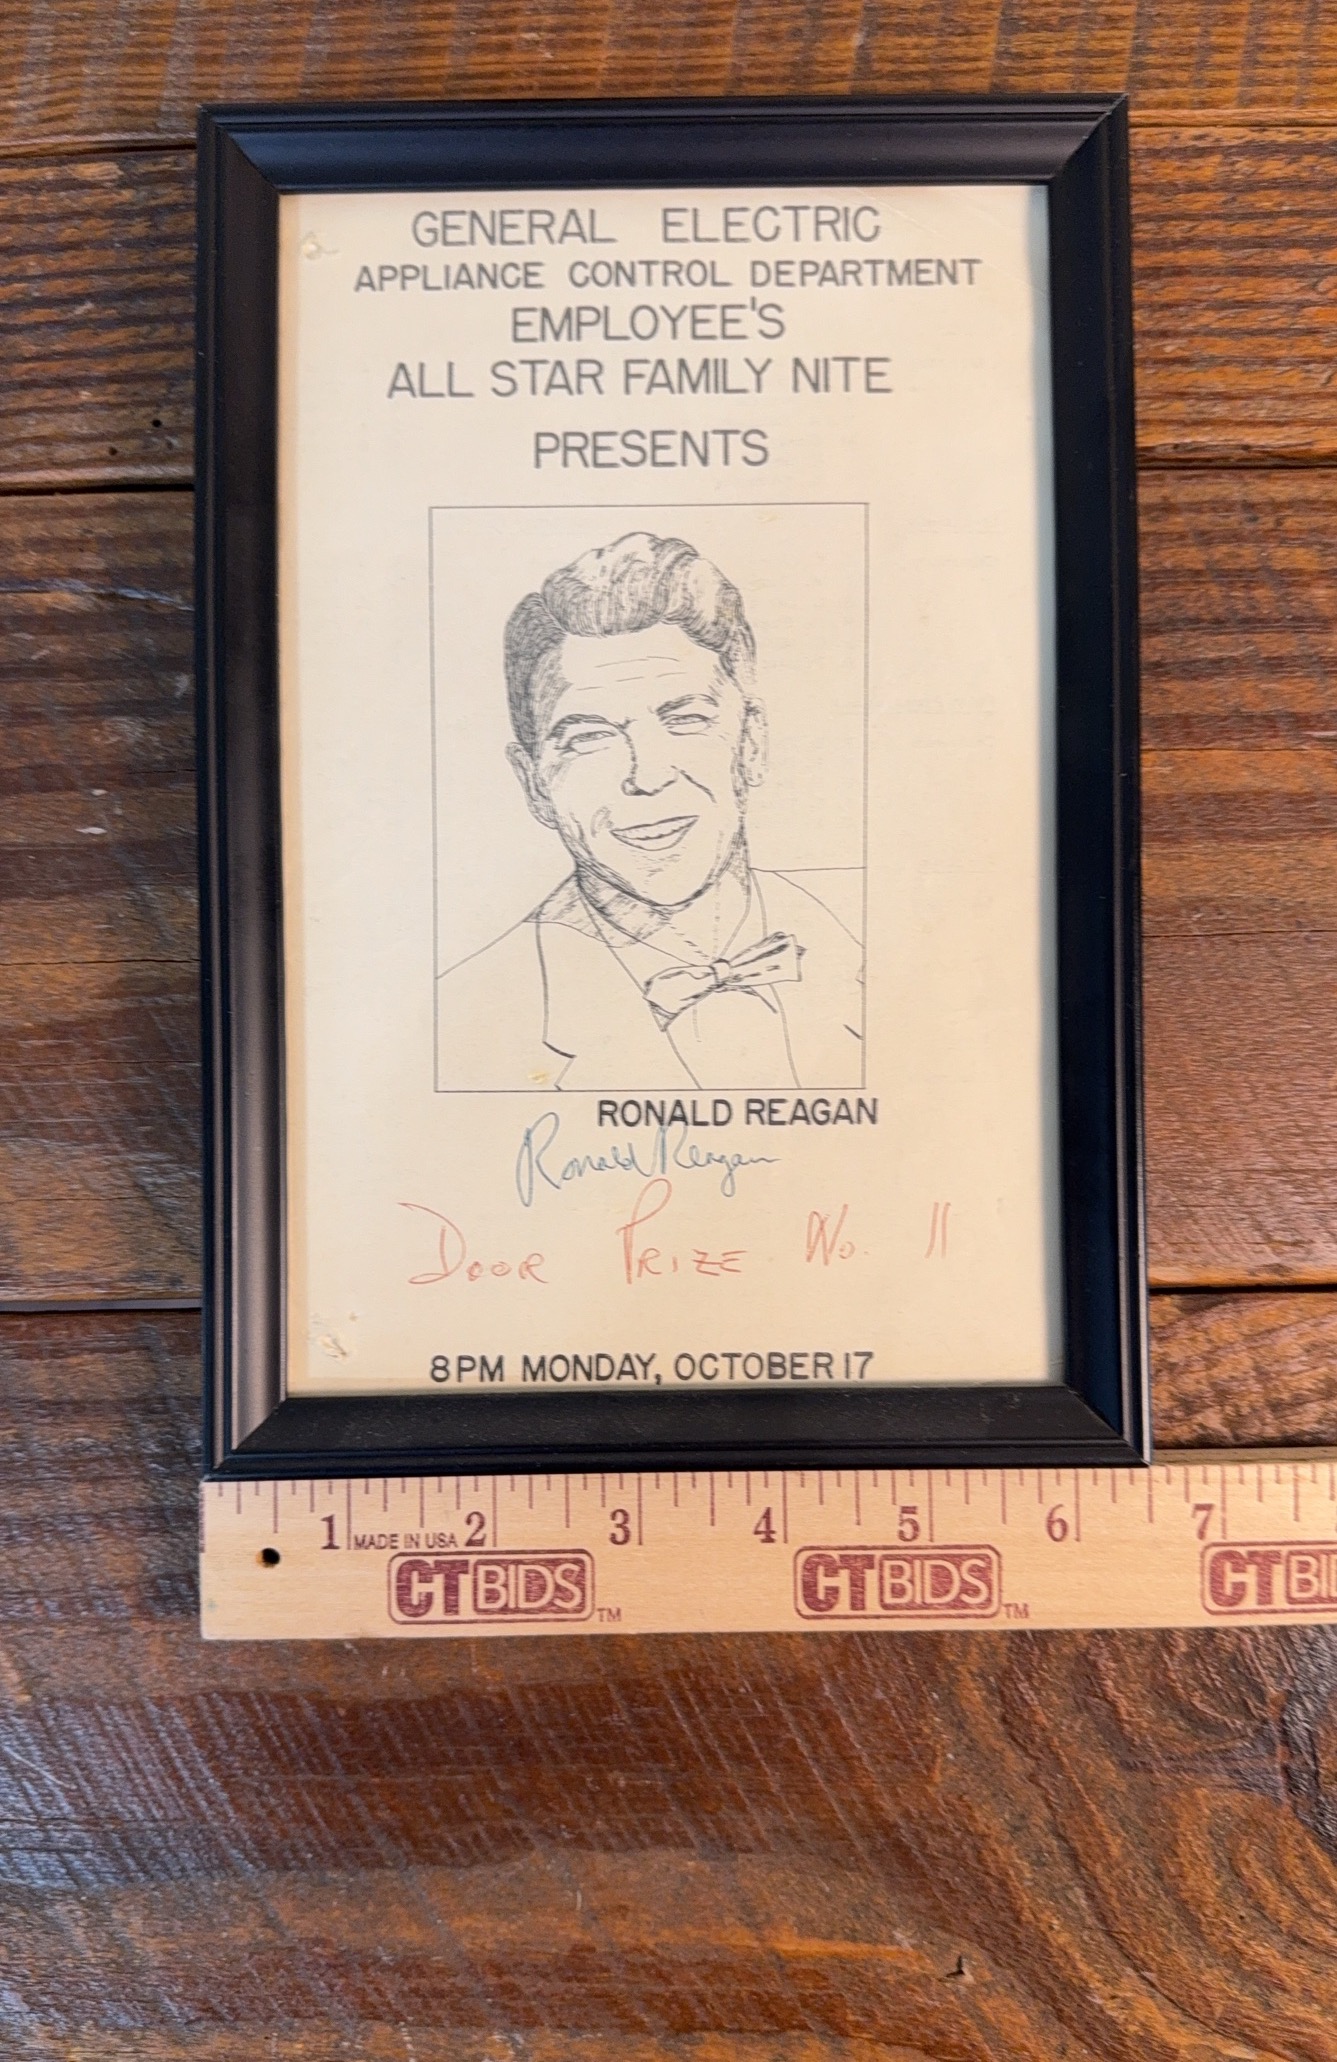 GENERAL ELECTRIC
APPLIANCE CONTROL DEPARTMENT
EMPLOYEE'S
ALL STAR FAMILY NITE
PRESENTS
RONALD REAGAN
Ronald Reagan
DOOR PRIZE No. 11
8PM MONDAY, OCTOBER 17
1 MADE IN USA 2 3 4 5 6 7
CTBIDS™ CTBIDS™ CTBI